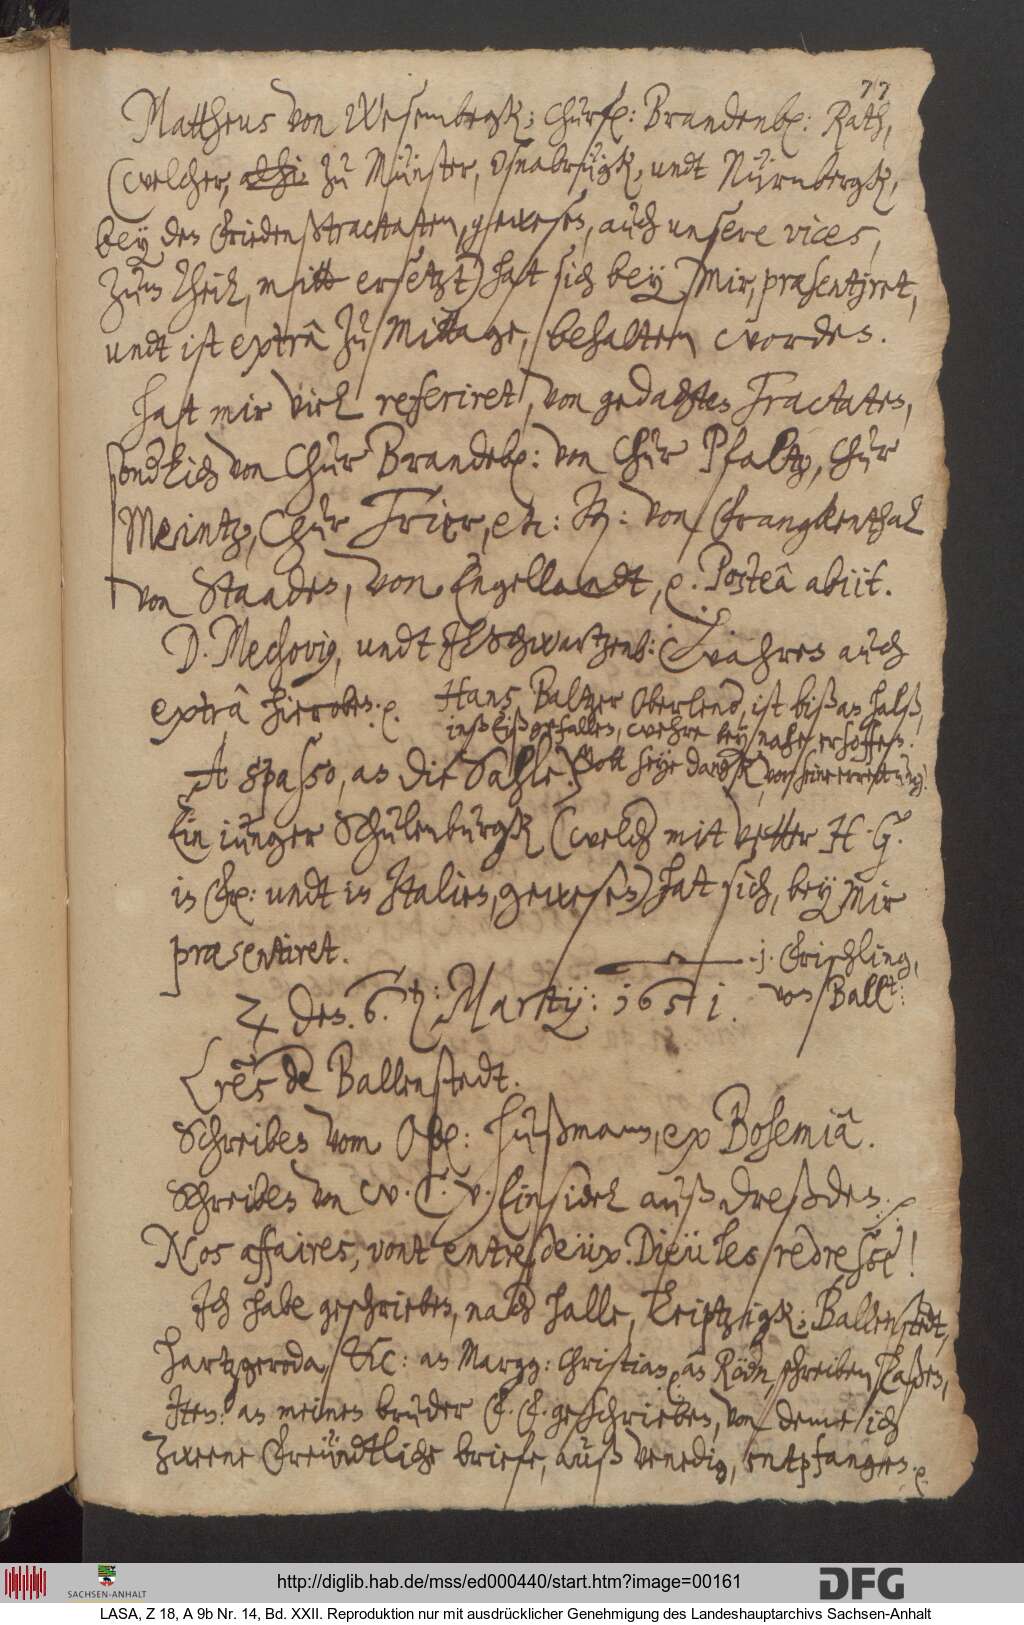 77
Mattheus von Wesembergk; Churf: Brandenb: Rath,
(welcher, alhie zu Münster, Osnabrügk, undt Nürnbergk,
bey den friedenßtractaten, gewesen, auch unsere vices,
zum theil, mitt ersetzt) hat sich bey Mir, præsentiret,
undt ist extrâ zu Mittage, behalten worden.
hat mir viel referiret, von gedachten Tractaten,
sonderlich von Chur Brandeb: von Chur Pfaltz, Chur
Meintz, Chur Trier, etc: It: von Franckenthal
von Staaden, von Engellandt, e. Posteâ abiit.
D. Mechovius, undt Schwartzenb: wahren auch
extrâ hieroben. e. Hans Baltzer Oberlend, ist biß an halß,
inß Eiß gefallen, wehre bey nahe ersoffen.
A spasso, an die Sahle. Gott seye danck, vor seine errettung.
Ein iunger Schulenburgk (welch mit vetter H. G.
in Fr: undt in Italien, gewesen) hat sich, bey Mir
præsentiret.
j. Frischling,
von Ball:
♃ den 6. Martij: 1651.
Lres de Ballenstedt.
Schreiben vom Ob: Hußmann, ex Bohemiâ.
Schreiben von W. C. v. Einsidel auß Dreßden. e.
Nos affaires, vont entre deüx. Dieü les redresse!
Ich habe geschrieben, nach Halle, Leiptzigk; Ballenstedt,
Hartzgeroda, &c: an Margg: Christian, e an Rödn, schreiben laßen,
Item: an meinen bruder F. F. geschrieben, von deme ich
zweene freündtliche briefe, auß Venedig, entpfangen. e.
http://diglib.hab.de/mss/ed000440/start.htm?image=00161
SACHSEN-ANHALT
DFG
LASA, Z 18, A 9b Nr. 14, Bd. XXII. Reproduktion nur mit ausdrücklicher Genehmigung des Landeshauptarchivs Sachsen-Anhalt